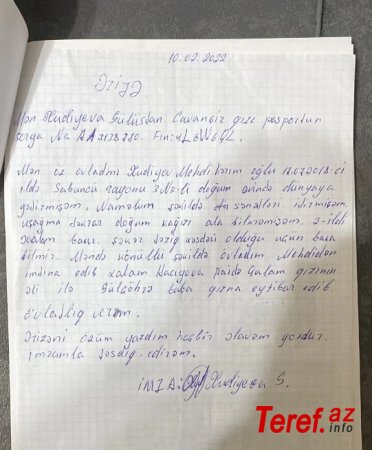 10.02.2022
Ərizə
Mən Xudiyeva Gülüstan Cavanşir qızı pasportun
serya № AA3178220 Fin:
Mən öz övladımı Xudiyev Mehdi oğlu 18.02.2018-ci
ildə Sabunçu rayonu 3№-li doğum evində dünyaya
gətirmişəm. Naməlum şəkildə sənədləri itirmişəm
uşağıma şəxsi doğum kağızı ala bilməmişəm. 2-ildi
Xalam baxır. şəxsi olduğu üçün baxa
bilmir. Məndə könüllü şəkildə övladım Mehdidən
imtina edib xalam Hacıyeva Raidə Qulam qızının
əli ilə Gülgöhrə Baba qızna etibar edib.
Övladlığ verəm.
Ərizəni özüm yazdım heçbir əlavəm yoxdur.
imzamla təsdiq edirəm.
İMZA: Xudiyeva G.
Teref.az
info